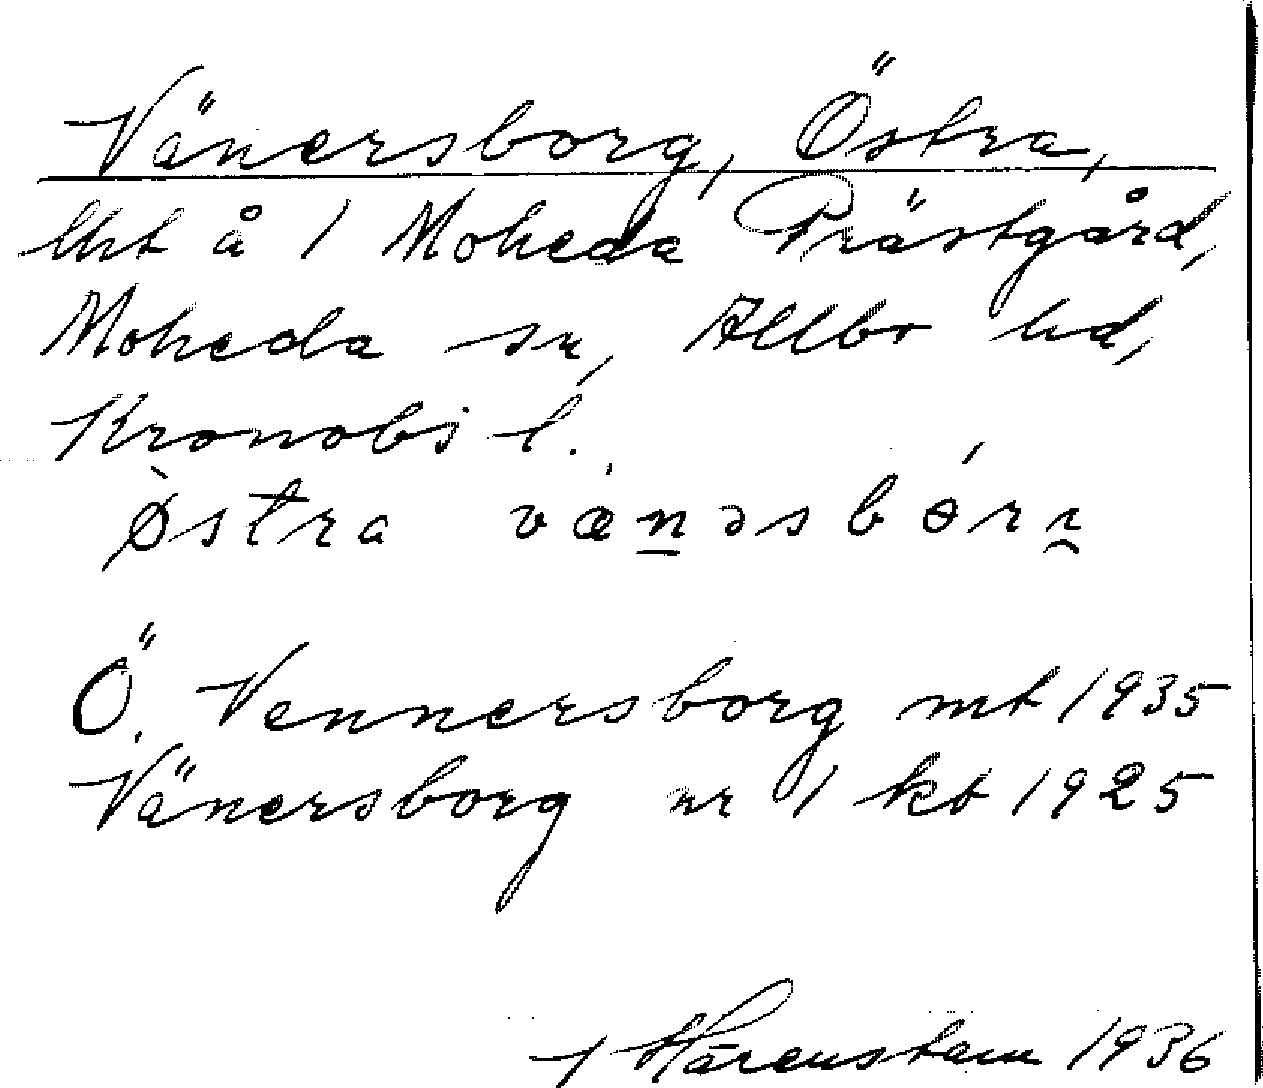 Vänersborg, Östra,
lht å 1 Moheda Prästgård,
Moheda sn, Allbo hd,
Kronobs l.
østra vænəsbórɪ
Ö. Vennersborg mt 1935
Vänersborg nr 1 kt 1925
Hårenstam 1936